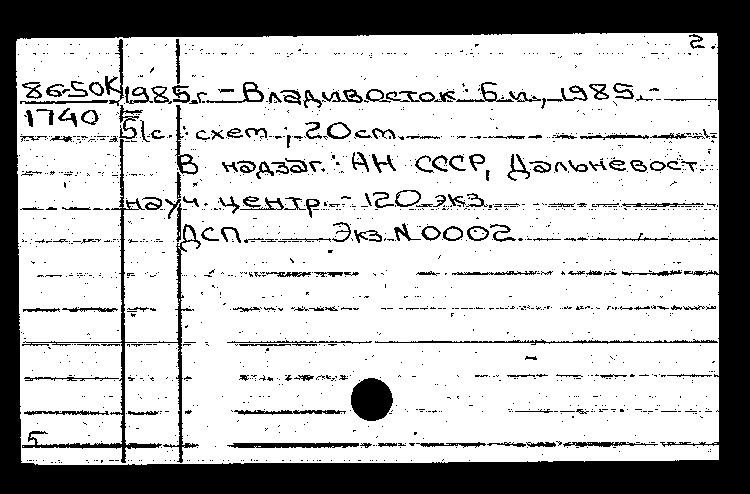 2.
86-50К 1985.г. - Владивосток: б.и., 1985. -
1740 51с.: схем; 20см.
В надзаг.: АН СССР, Дальневост.
науч. центр. - 120 экз.
ДСП. Экз N 0002.
5